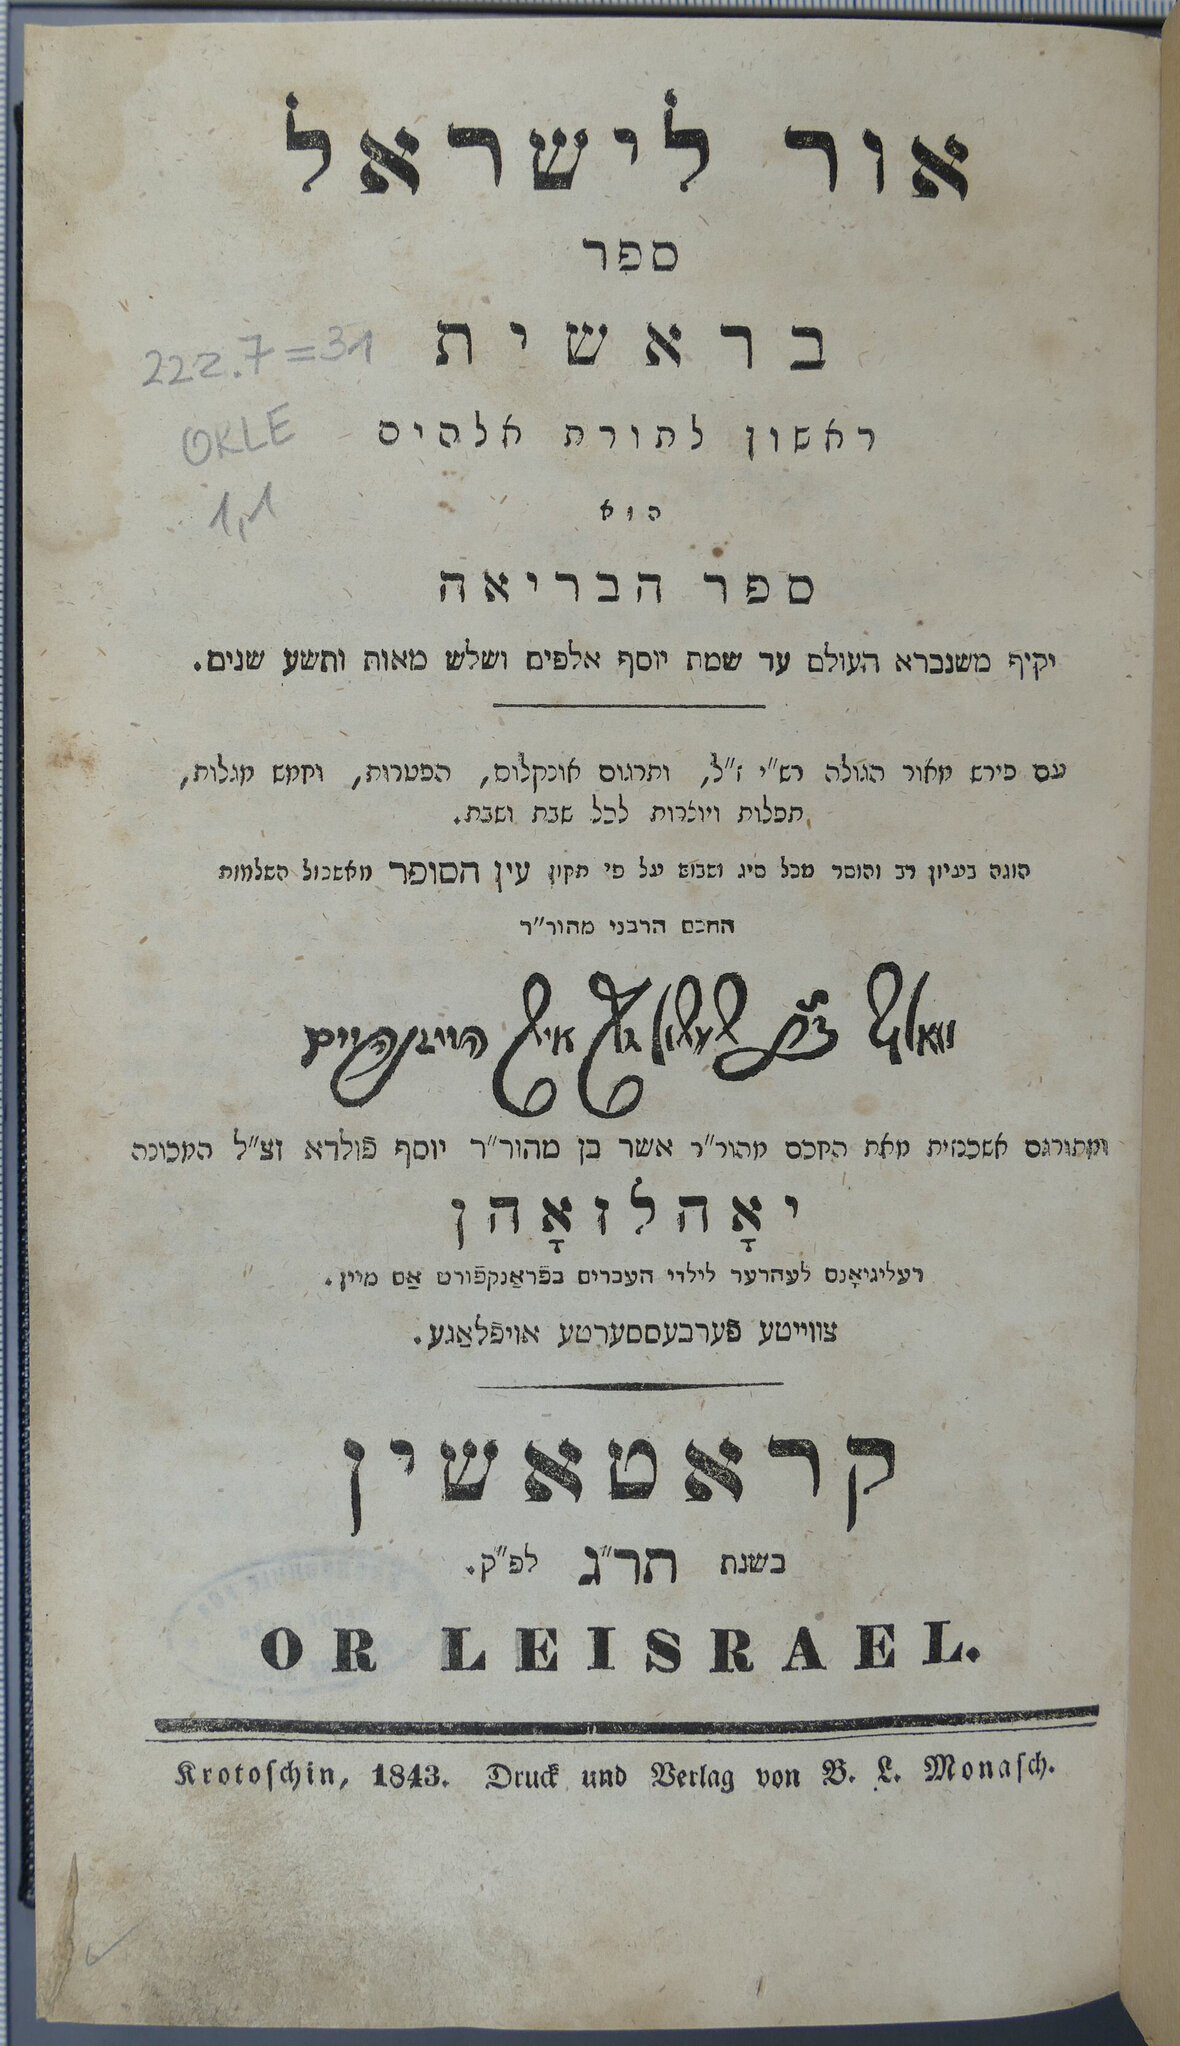 אור לישראל
ספר
בראשית
ראשון לתורת אלהים
הוא
ספר הבריאה
יקיף משנברא העולם עד שמת יוסף אלפים ושלש מאות ותשע שנים.
עם פירש מאור הגולה רש"י ז"ל, ותרגום אונקלוס, הפטרות, וחמש מגלות,
תפלות ויוצרות לכל שבת ושבת.
הוגה בעיון רב והוסר מכל סיג ושבוש על פי תקון עין הסופר מאשכול השלמות
החכם הרבני מהור"ר
וואלף היידנהיים
ומתורגם אשכנזית מאת החכם מהור"ר אשר בן מהור"ר יוסף פֿולדא זצ"ל המכונה
יאָהלזאָהן
רעליגיאָנס לעהרער לילדי העברים בפֿראַנקפֿורט אַם מיין.
צווייטע פֿערבעססערטע אויפֿלאַגע.
קראטאשין
בשנת תר"ג לפ"ק.
OR LEISRAEL.
Krotoschin, 1843. Druck und Verlag von B. L. Monasch.
222.7=31
OKLE
1,1